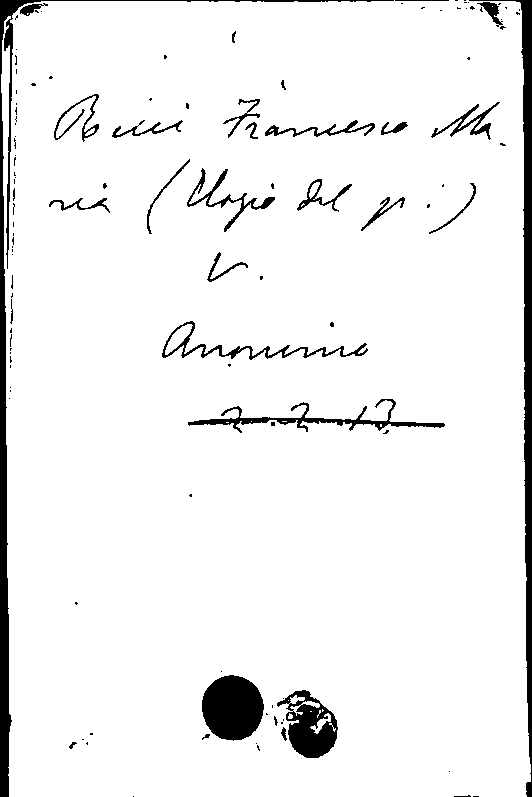 Ricci Francesco Ma-
ria (Elogio del p.:)
V.
Anonimo
2.2.13